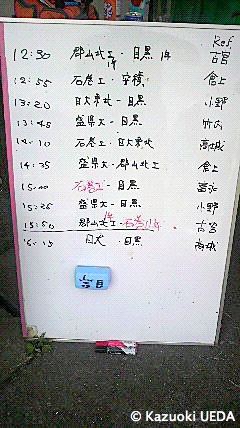 Ref.
12:30 郡山北工・目黒 1年 古宮
1年
12:55 石巻工・安積 倉上
13:20 日大東北・目黒 小野
13:45 盛県大・目黒 竹内
14:10 石巻工・日大東北 高城
14:35 盛県大・郡山北工 倉上
15:00 石巻工・目黒
15:25 盛県大・目黒 小野
15:50 郡山北工・石巻工1年 古宮
1年
16:15 日大・目黒 高城
© Kazuoki UEDA